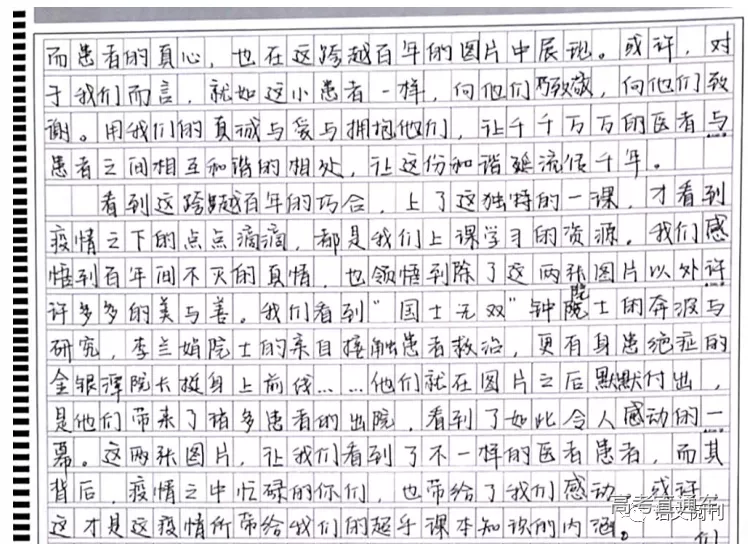 而患者的真心，也在这跨越百年的图片中展现。或许，对
于我们而言，就如这小患者一样，向他们致敬，向他们致
谢。用我们的真诚与爱与拥抱他们，让千千万万的医者与
患者之间相互和谐的相处，让这份和谐延流传千年。
看到这跨越百年的巧合，上了这独特的一课，才看到
疫情之下的点点滴滴，都是我们上课学习的资源。我们感
悟到百年间不灭的真情，也领悟到除了这两张图片以外许
许多多的美与善。我们看到“国士无双”钟院士的奔波与
研究，李兰娟院士的亲自接触患者救治，更有身患绝症的
金银潭院长挺身上前线……他们就在图片之后默默付出，
是他们带来了诸多患者的出院，看到了如此令人感动的一
幕。这两张图片，让我们看到了不一样的医者患者，而其
背后，疫情之中忙碌的你们，也带给了我们感动。或许
这才是这疫情所带给我们的超乎课本知识的内涵。 们
高考直通车
语文阅刊